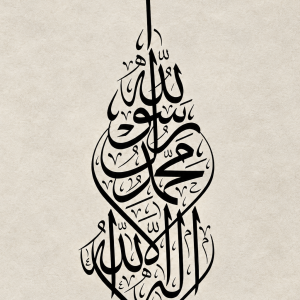 لا إله إلا الله
محمد
رسول
الله